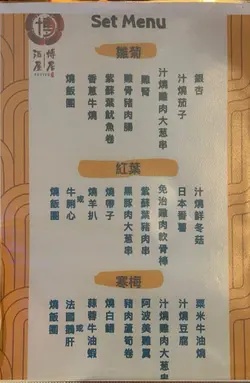 博居
酒屋
Set Menu
雛菊
銀杏
汁燒茄子
汁燒雞肉大葱串
雞腎
雞骨豬肉腸
紫蘇葉魷魚卷
香蔥牛燒
燒飯團
紅葉
汁燒鮮冬菇
日本番薯
免治雞肉軟骨棒
紫蘇葉豬肉串
黑豚肉大葱串
燒帶子
燒羊扒
或
牛脷心
燒飯團
寒梅
粟米牛油燒
汁燒豆腐
汁燒雞肉大葱串
阿波美雞翼
豬肉蘆筍卷
燒白鱔
蒜蓉牛油蝦
或
法國鵝肝
燒飯團